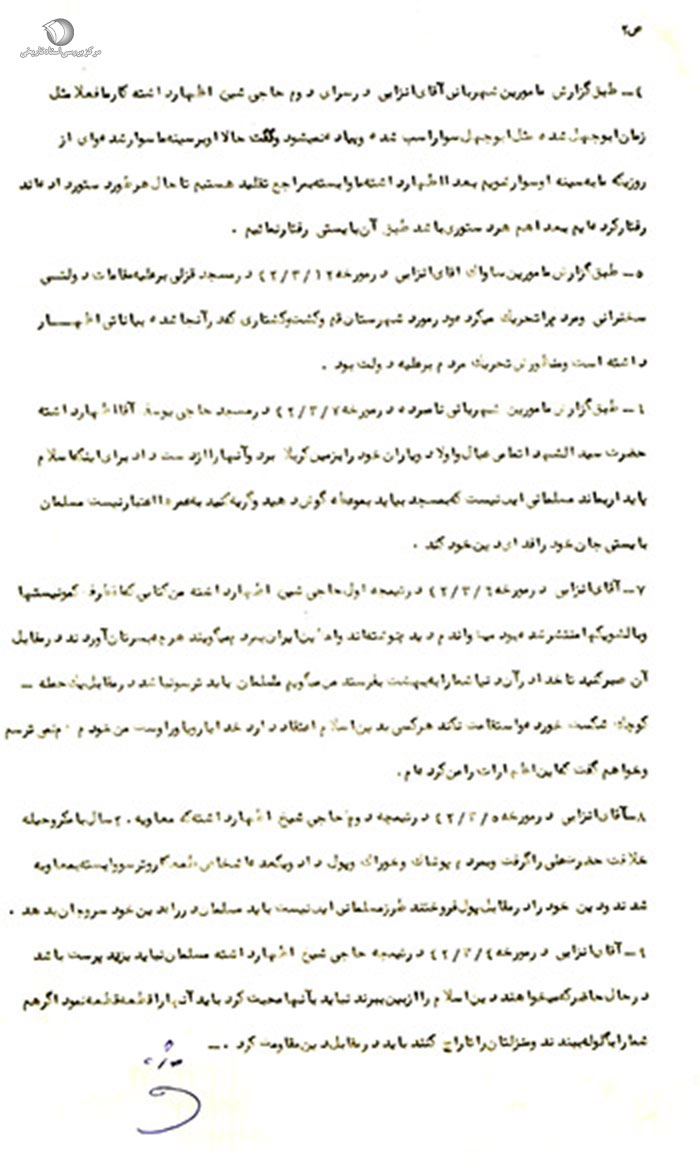 مرکز بررسی اسناد تاریخی
ص۲
۴ــ طبق گزارش مامورین شهربانی آقای انزابی در سرای دوم حاجی شیخ اظهار داشته کار ما فعلا مثل
زمان ابوجهل شده مثل ابوجهل سوار اسب شده و پیاده نمیشود و گفت حالا او بر سینه ما سوار شده وای از
روزیکه ما به سینه او سوار شویم بعدا اظهار داشته ما وابسته بمراجع تقلید هستیم تا حال هر طور دستور داده اند
رفتار کرده ایم بعدا هم هر دستوری باشد طبق آن بایستی رفتار نمائیم .
۵ــ طبق گزارش مامورین ساواک اقای انزابی در مورخه ۴۲/۳/۱۲ در مسجد قزلی بر علیه مقامات دولتی
سخنرانی و مردم را تحریک میکرد و در مورد شهرستان قم و کشت و کشتاری که در آنجا شده بیاناتی اظهـــار
داشته است و منظورش تحریک مردم بر علیه دولت بود .
۶ــ طبق گزارش مامورین شهربانی نامبرده در مورخه ۴۲/۳/۷ در مسجد حاجی یوسف آقا اظهار داشته
حضرت سید الشهدا تمامی عیال و اولاد و یاران خود را بزمین کربلا برد و آنها را از دست داد برای اینکه اسلام
پایدار بماند مسلمانی این نیست که بمسجد بیاید بموعظه گوش دهید و گریه کنید به عمر ما اعتبار نیست مسلمان
بایستی جان خود را فدای دین خود کند .
۷ــ آقای انزابی در مورخه ۴۲/۳/۶ در تیمچه اول حاجی شیخ اظهار داشته من کتابی که از طرف کمونیستها
و بالشویکها منتشر شده بود میخواندم دیدم نوشته اند واعظین ایران بمردم میگویند هر چه بسرتان آوردند در مقابل
آن صبر کنید تا خدا در آن دنیا شما را به بهشت بفرستد من میگویم مسلمان باید ترسو نباشد در مقابل یک حمله ــ
کوچک شکست خورده و استقامت نکند هر کسی به دین اسلام اعتقاد دارد خدا یار و یاور اوست من خودم نمی ترسم
و خواهم گفت که این اظهارات را من کرده ام .
۸ــ آقای انزابی در مورخه ۴۲/۳/۵ در تیمچه دوم حاجی شیخ اظهار داشته که معاویه ۲۰ سال با مکر و حیله
خلافت حضرت علی را گرفت و بمردم پوشاک و خوراک و پول داد و یکعده اشخاص طمعکار و ترسو وابسته بمعاویه
شدند و دین خود را در مقابل پول فروختند طرز مسلمانی این نیست باید مسلمان در راه دین خود سر و جان بدهد .
۹ــ آقای انزابی در مورخه ۴۲/۳/۴ در تیمچه حاجی شیخ اظهار داشته مسلمان نباید یزید پرست باشد
در حال حاضر که میخواهند دین اسلام را از بین ببرند نباید به آنها محبت کرد باید آنها را قطعه قطعه نمود اگر هم
شما را با گوله ببندند و منزلتان را تاراج کنند باید در مقابل دین مقاومت کرد .ــ